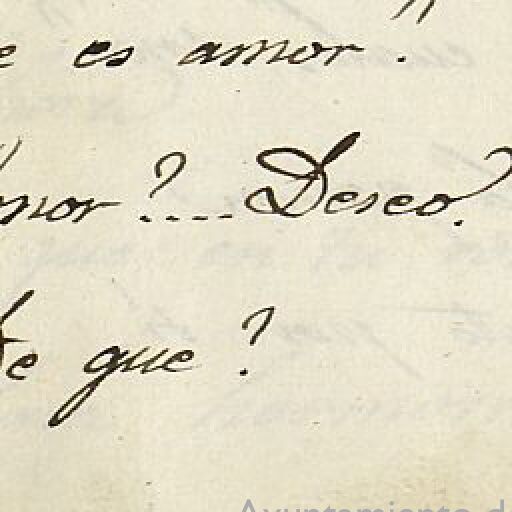 e es amor."
mor?....Deseo?
de que?
Ayuntamiento d